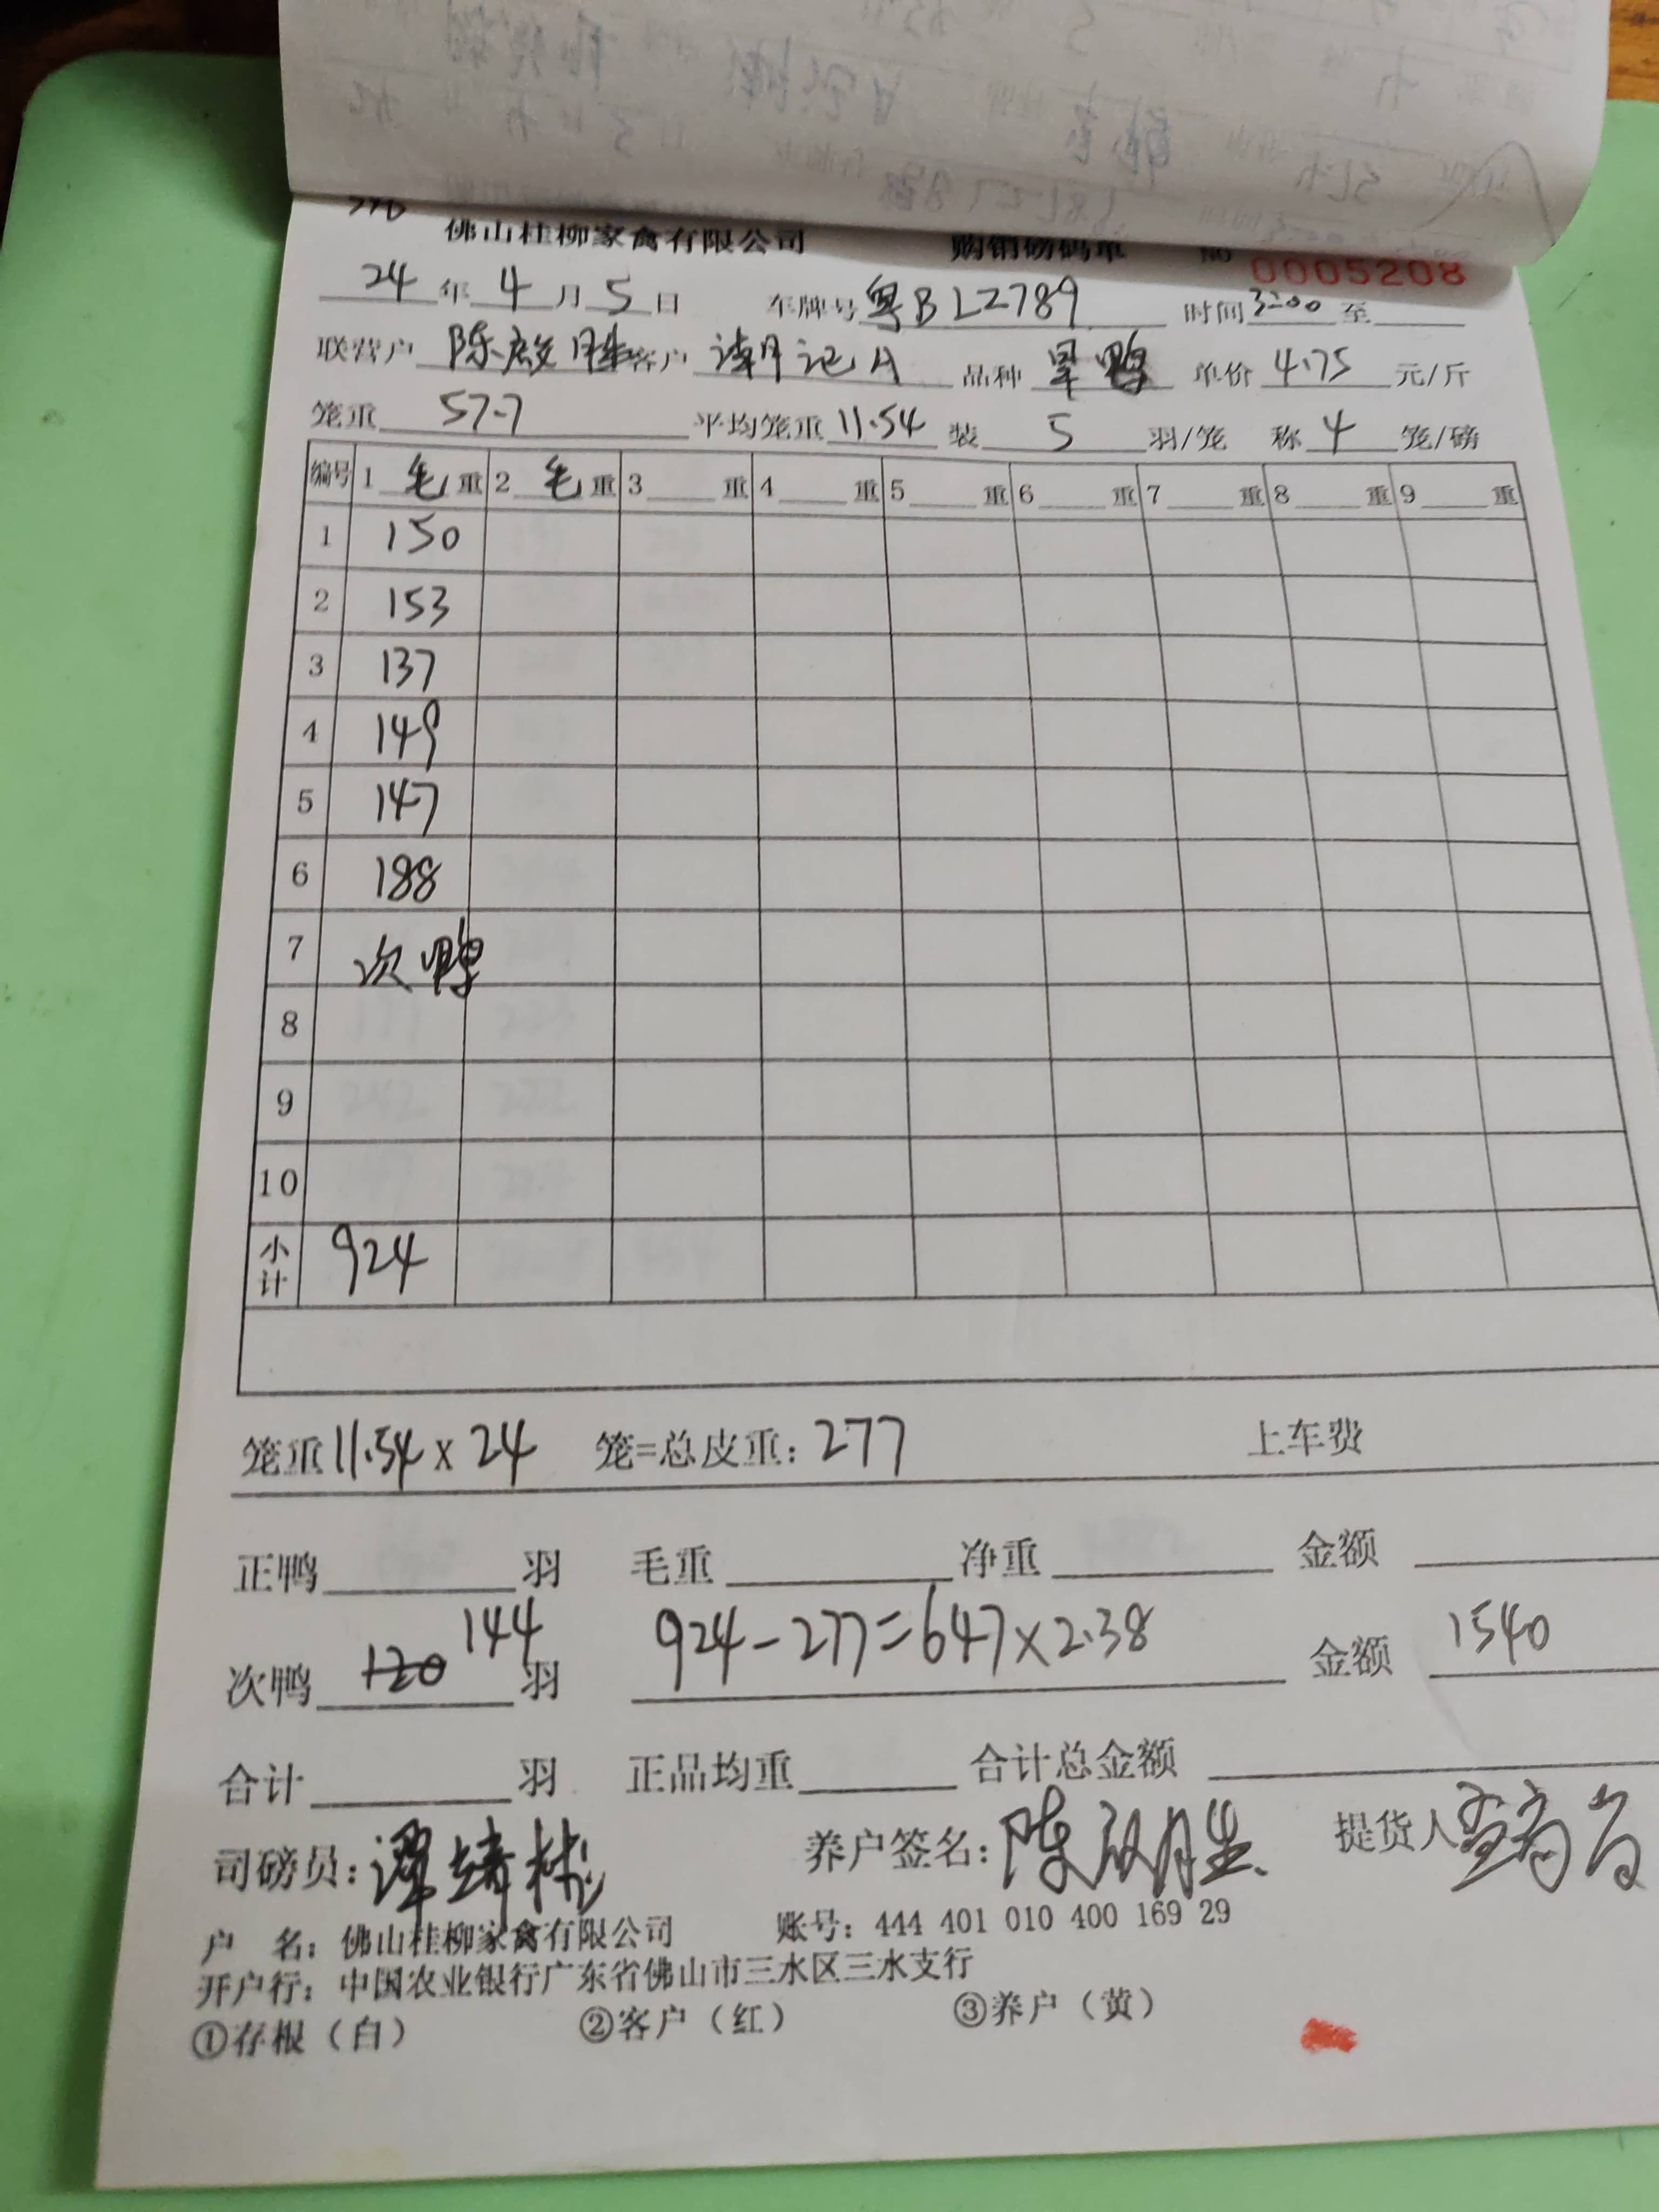 佛山桂柳家禽有限公司 购销磅码单 NO 0005208
24年4月5日 车牌号 粤BLZ789 时间 3:00 至
联营户 陈 胜 客户 记A 品种 旱鸭 单价 4.75 元/斤
笼重 57.7 平均笼重 11.54 装 5 羽/笼 称 4 笼/磅
编号 1 毛 重 2 毛 重 3 重 4 重 5 重 6 重 7 重 8 重 9 重
1 150
2 153
3 137
4 149
5 147
6 188
7 次鸭
8
9
10
小计 924
笼重 11.54 x 24 笼=总皮重: 277 上车费
正鸭 羽 毛重 净重 金额
次鸭 120 144 羽 924-277=647×2.38 金额 1540
合计 羽 正品均重 合计总金额
司磅员: 谭 养户签名: 陈 胜 提货人
户 名: 佛山桂柳家禽有限公司 账号: 444 401 010 400 169 29
开户行: 中国农业银行广东省佛山市三水区三水支行
①存根（白） ②客户（红） ③养户（黄）